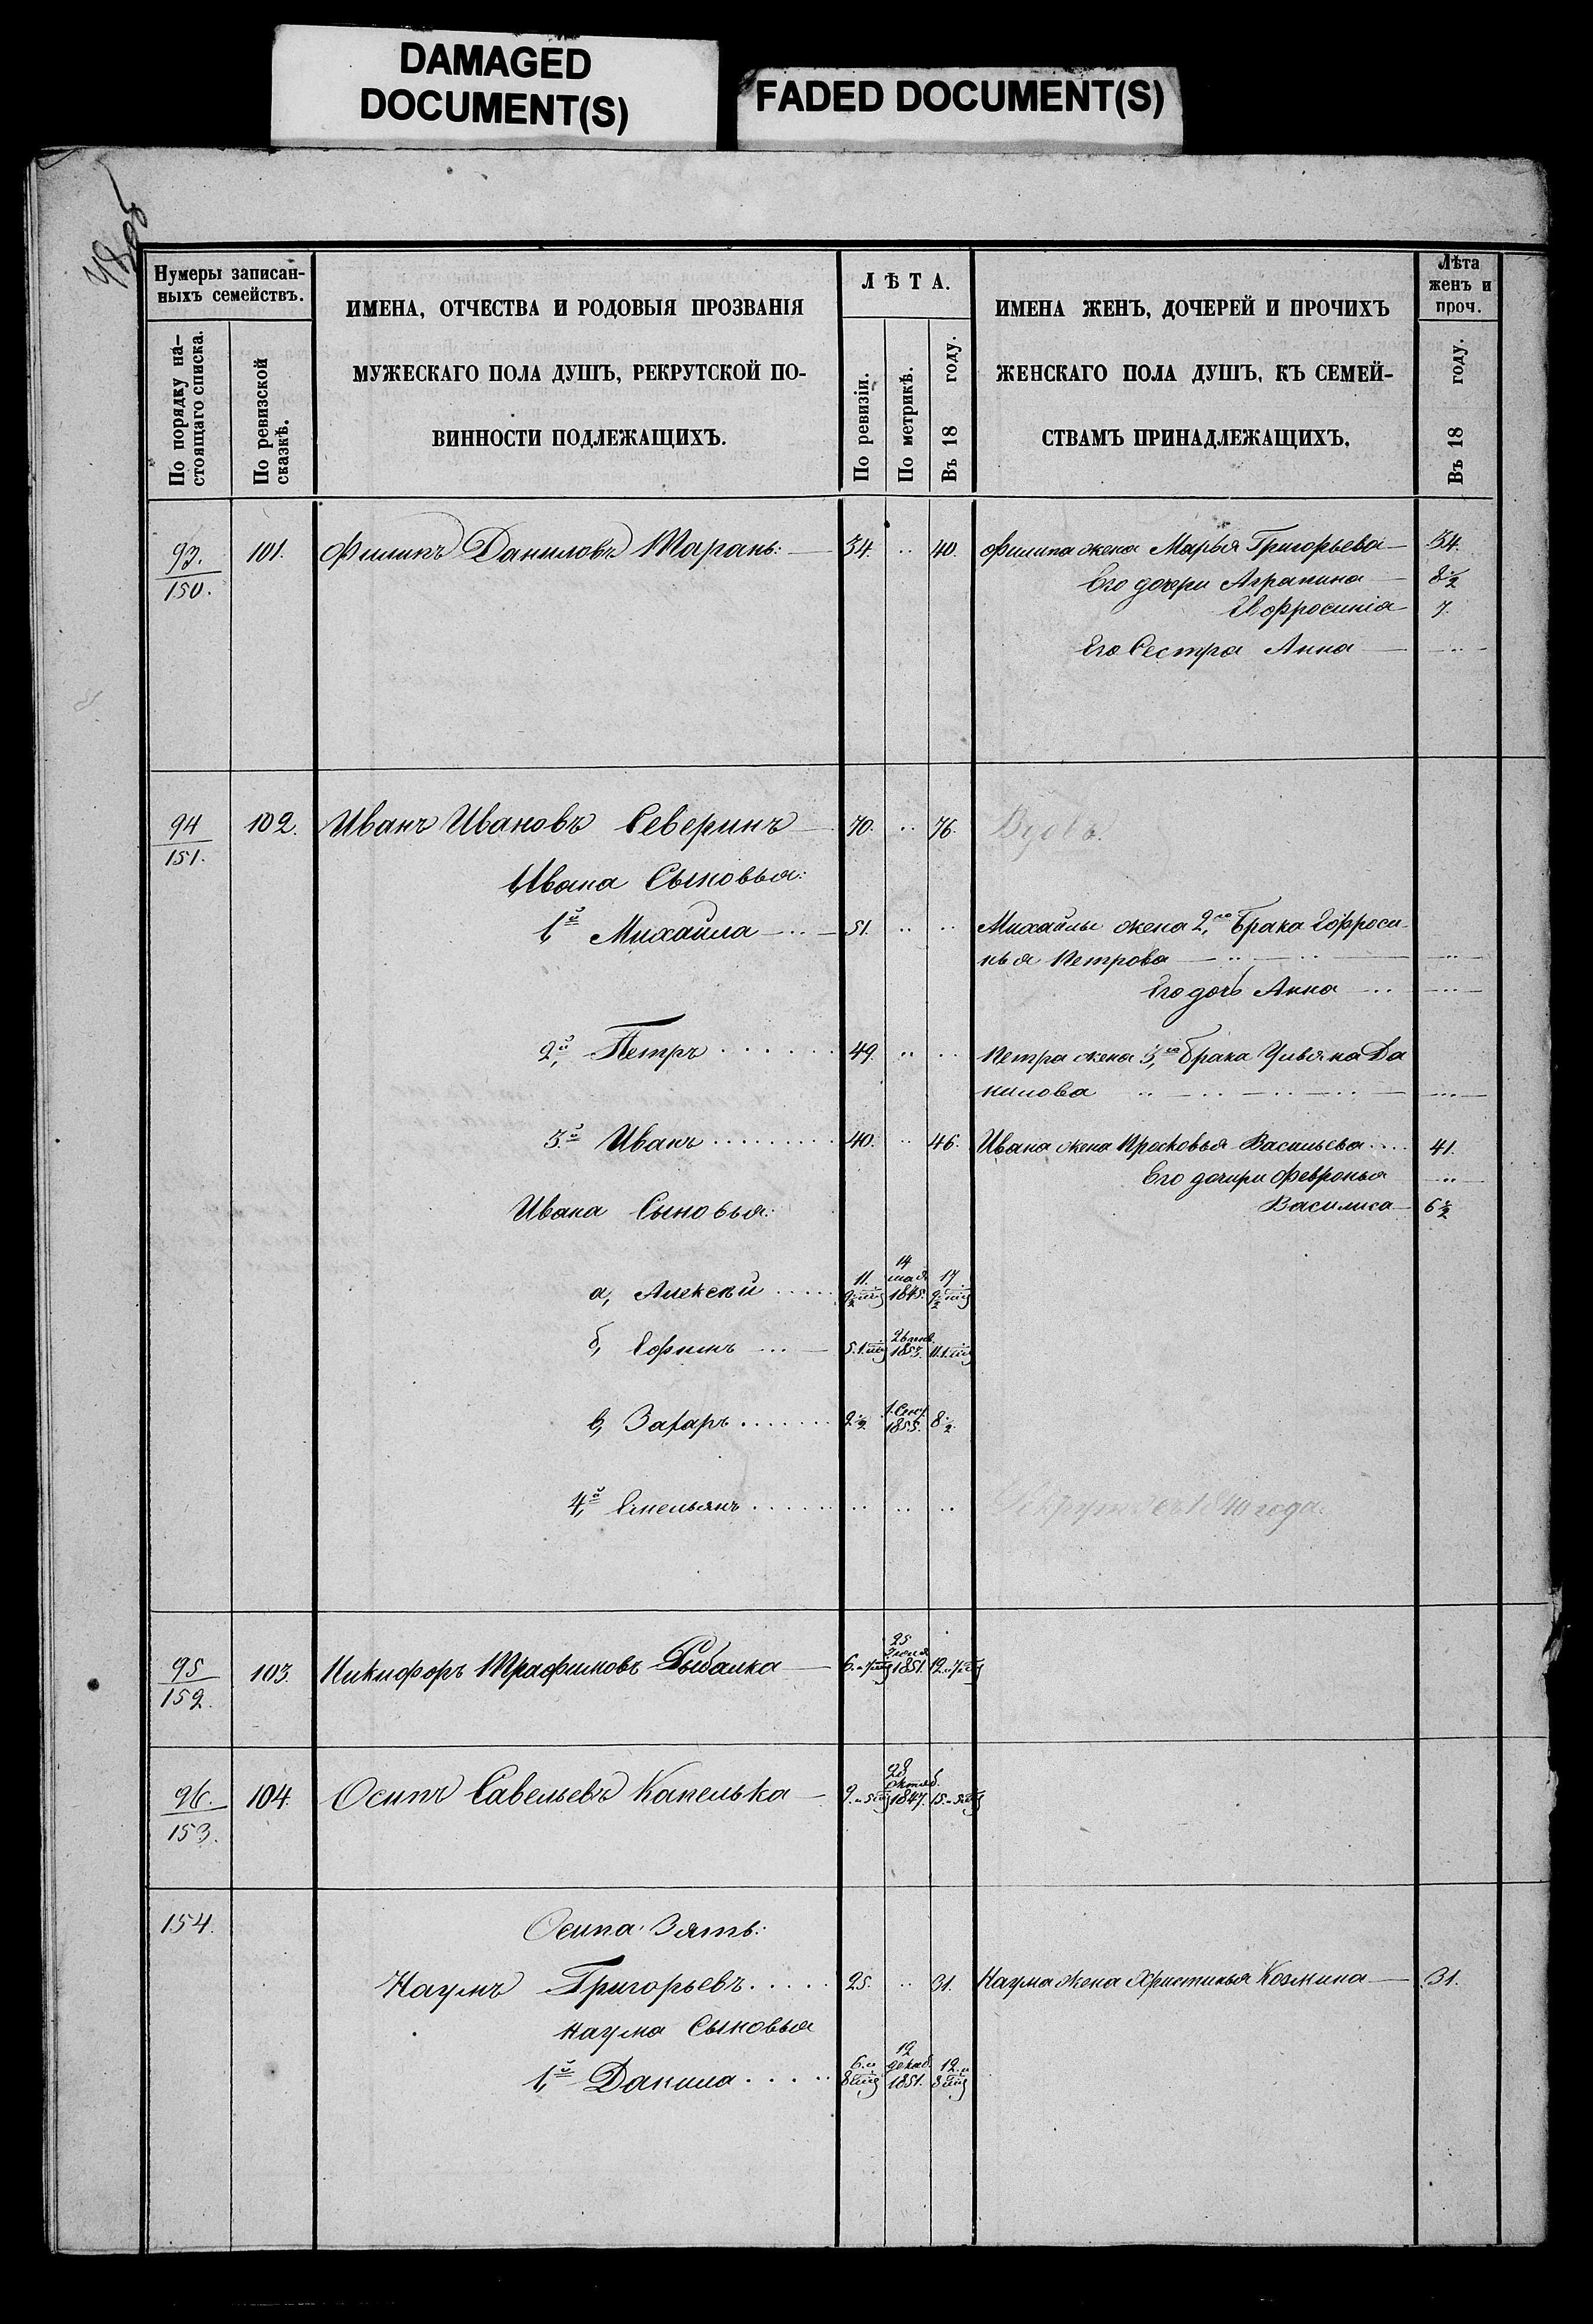 DAMAGED
DOCUMENT(S)
FADED DOCUMENT(S)
Нумеры записан-
ныхъ семействъ.
По порядку на-
стоящаго списка.
По ревизской
сказкѣ.
ИМЕНА, ОТЧЕСТВА И РОДОВЫЯ ПРОЗВАНІЯ
МУЖЕСКАГО ПОЛА ДУШЪ, РЕКРУТСКОЙ ПО-
ВИННОСТИ ПОДЛЕЖАЩИХЪ.
ЛѢТА.
По ревизіи.
По метрикѣ.
Въ 18 году.
ИМЕНА ЖЕНЪ, ДОЧЕРЕЙ И ПРОЧИХЪ
ЖЕНСКАГО ПОЛА ДУШЪ, КЪ СЕМЕЙ-
СТВАМЪ ПРИНАДЛЕЖАЩИХЪ.
Лѣта
женъ и
проч.
Въ 18 году.
93. 101. Филипъ Даниловъ Таранъ: 34. 40. Филипа жена Марья Григорьева 34.
150. Его дочери Аграпина 8½
Евфросинія 7.
Его Сестра Анна
94 102. Иванъ Ивановъ Северинъ 70. 76. Вдовъ.
151.
Ивана Сыновья:
1й Михайла 51. Михайлы жена 2го брака Ефроси-
нья Петрова
Его дочь Анна
2й Петръ 49. Петра жена 3го брака Ульяна Да
нилова
3й Иванъ 40. 46. Ивана жена Просковья Васильева 41.
Его дочири Февронья
Ивана Сыновья: Василиса 6½
14
а, Алексѣй 11. мая 17
9½ мц 1845. 9½ мц
б, Ефимъ 5. 1. мц 1853. 11. 1. мц
в, Захаръ 2½ 1. Сент 1855. 8½
4й Емельянъ Рекрутъ съ 1840 года.
25
95 103. Никифоръ Трафимовъ Рыбалка 6. и 7 мц 1851. 12. и 7 мц
152.
28
96. 104. Осипъ Савельевъ Капелька 9. и 5 мц октяб. 1847. 15. и 5 мц
153.
154. Осипа Зять:
Наумъ Григорьевъ 25. 31. Наума жена Христинья Козмина 31.
Наума Сыновья
12
1й Данила 6. и декаб. 12. и
8 мц 1851. 8 мц